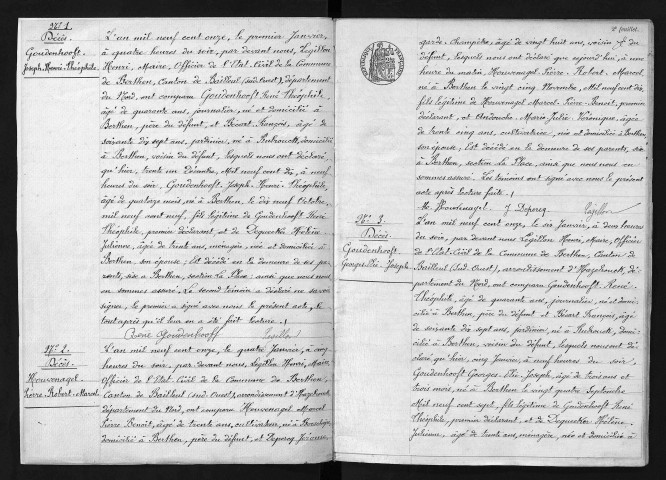 N° 1.
Décès
Goudenhooft
Joseph-Henri-Théophile
L'an mil neuf cent onze, le premier Janvier,
à quatre heures du soir, par devant nous, Legillon
Henri, Maire, Officier de l'Etat-Civil de la Commune
de Berthen, Canton de Bailleul (Sud-Ouest), département
du Nord, ont comparu Goudenhooft René Théophile,
âgé de quarante ans, journalier, né et domicilié à
Berthen, père du défunt et Bécart François, âgé de
soixante dix sept ans, jardinier, né à domicilié
à Berthen, voisin du défunt, lesquels nous ont déclaré
qu'hier, trente un Décembre, Mil neuf cent dix, à neuf
heures du soir, Goudenhooft, Joseph-Henri-Théophile,
âgé de quatorze mois, né à Berthen, le dix neuf Octobre,
mil neuf cent neuf, fils légitime de Goudenhooft René
Théophile, premier déclarant, et de Dequecker Hélène
Julienne, âgée de trente ans, ménagère, née et domiciliée à
Berthen son épouse, Est décédé en la demeure de ses pa-
rents, sise à Berthen, section La Place, ainsi que nous nous
en sommes assuré. Le second témoin a déclaré ne savoir
signer, le premier a signé avec nous le présent acte, le
tout après qu'il leur en a été fait lecture.
René Goudenhooft Legillon
N° 2.
Décès
Houvenagel
Pierre-Robert-Marcel
L'an mil neuf cent onze, le quatre Janvier, à cinq
heures du soir, par devant nous, Legillon Henri, Maire,
Officier de l'Etat-Civil de la Commune de Berthen,
Canton de Bailleul (Sud-Ouest), arrondissement d'Hazebrouck
département du Nord, ont comparu Houvenagel Marcel
Pierre Benoît, âgé de trente ans, cultivateur, né à
domicilié à Berthen, père du défunt, et Deporcq Jérome,
2e feuillet.
garde-Champêtre, âgé de vingt huit ans, voisin du
défunt, lesquels nous ont déclaré que aujourd'hui, à une
heure du matin Houvenagel Pierre-Robert-Marcel,
né à Berthen le vingt cinq Novembre, Mil neuf cent dix,
fils légitime de Houvenagel Marcel-Pierre-Benoît, premier
déclarant, et Marie Julie Véronique, âgée
de trente cinq ans, cultivatrice, née et domiciliée à Berthen,
son épouse, Est décédé en la demeure de ses parents, sise
à Berthen, section La Place, ainsi que nous nous en
sommes assuré. Les témoins ont signé avec nous le présent
acte après lecture faite.
M. Houvenagel J. Deporcq Legillon
N° 3.
Décès
Goudenhooft
Georges-Elie-Joseph
L'an mil neuf cent onze, le six Janvier, à deux heures
du soir, par devant nous Legillon Henri, Maire, Officier
de l'Etat-Civil de la Commune de Berthen, Canton de
Bailleul (Sud-Ouest), arrondissement d'Hazebrouck, dé-
partement du Nord, ont comparu Goudenhooft René-
Théophile, âgé de quarante ans, journalier, né et domi-
cilié à Berthen, père du défunt et Bécart François, âgé
de soixante dix sept ans, jardinier, né à domi-
cilié à Berthen, voisin du défunt, lesquels nous ont dé-
claré qu'hier, cinq Janvier, à neuf heures du soir,
Goudenhooft Georges-Elie-Joseph, âgé de trois ans et
trois mois, né à Berthen le vingt quatre Septembre
Mil neuf cent sept, fils légitime de Goudenhooft René
Théophile, premier déclarant, et de Dequecker Hélène
Julienne, âgée de trente ans, ménagère, née et domiciliée à